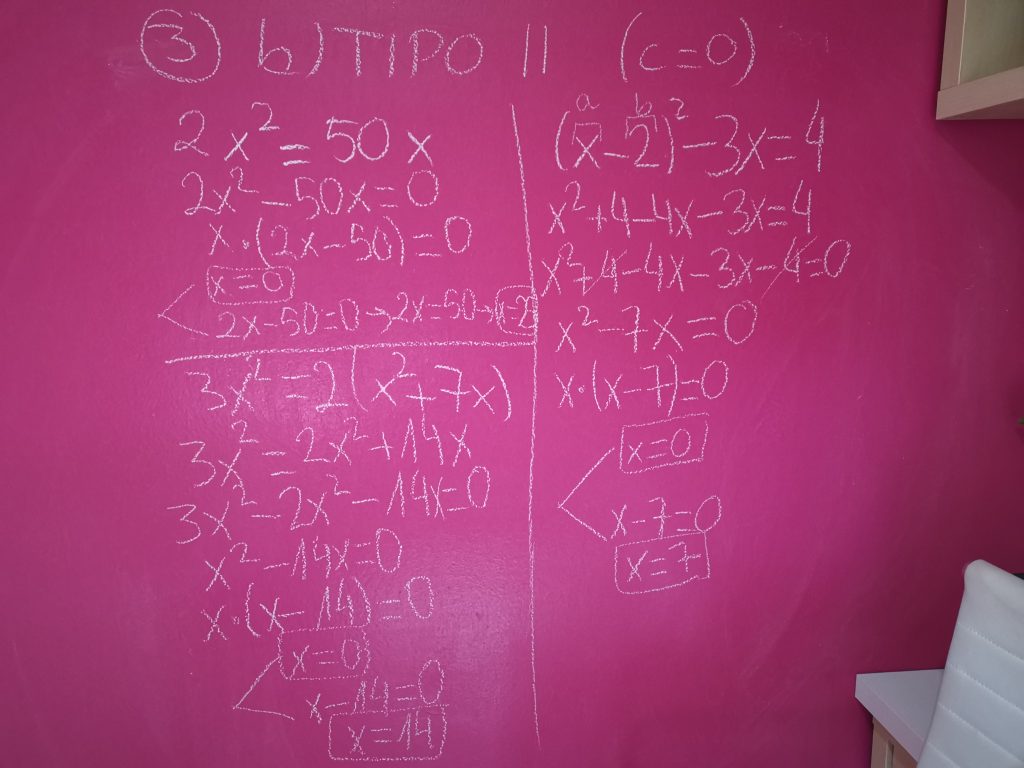 ③ b) TIPO II (c=0)
2x² = 50x
2x² - 50x = 0
x·(2x-50) = 0
x=0
2x-50=0 → 2x=50 →
3x² = 2(x²+7x)
3x² = 2x²+14x
3x² - 2x² - 14x=0
x² - 14x=0
x·(x-14)=0
x=0
x-14=0
x=14
a b
(x-2)² - 3x = 4
x²+4-4x-3x=4
x²+4-4x-3x-4=0
x²-7x=0
x·(x-7)=0
x=0
x-7=0
x=7